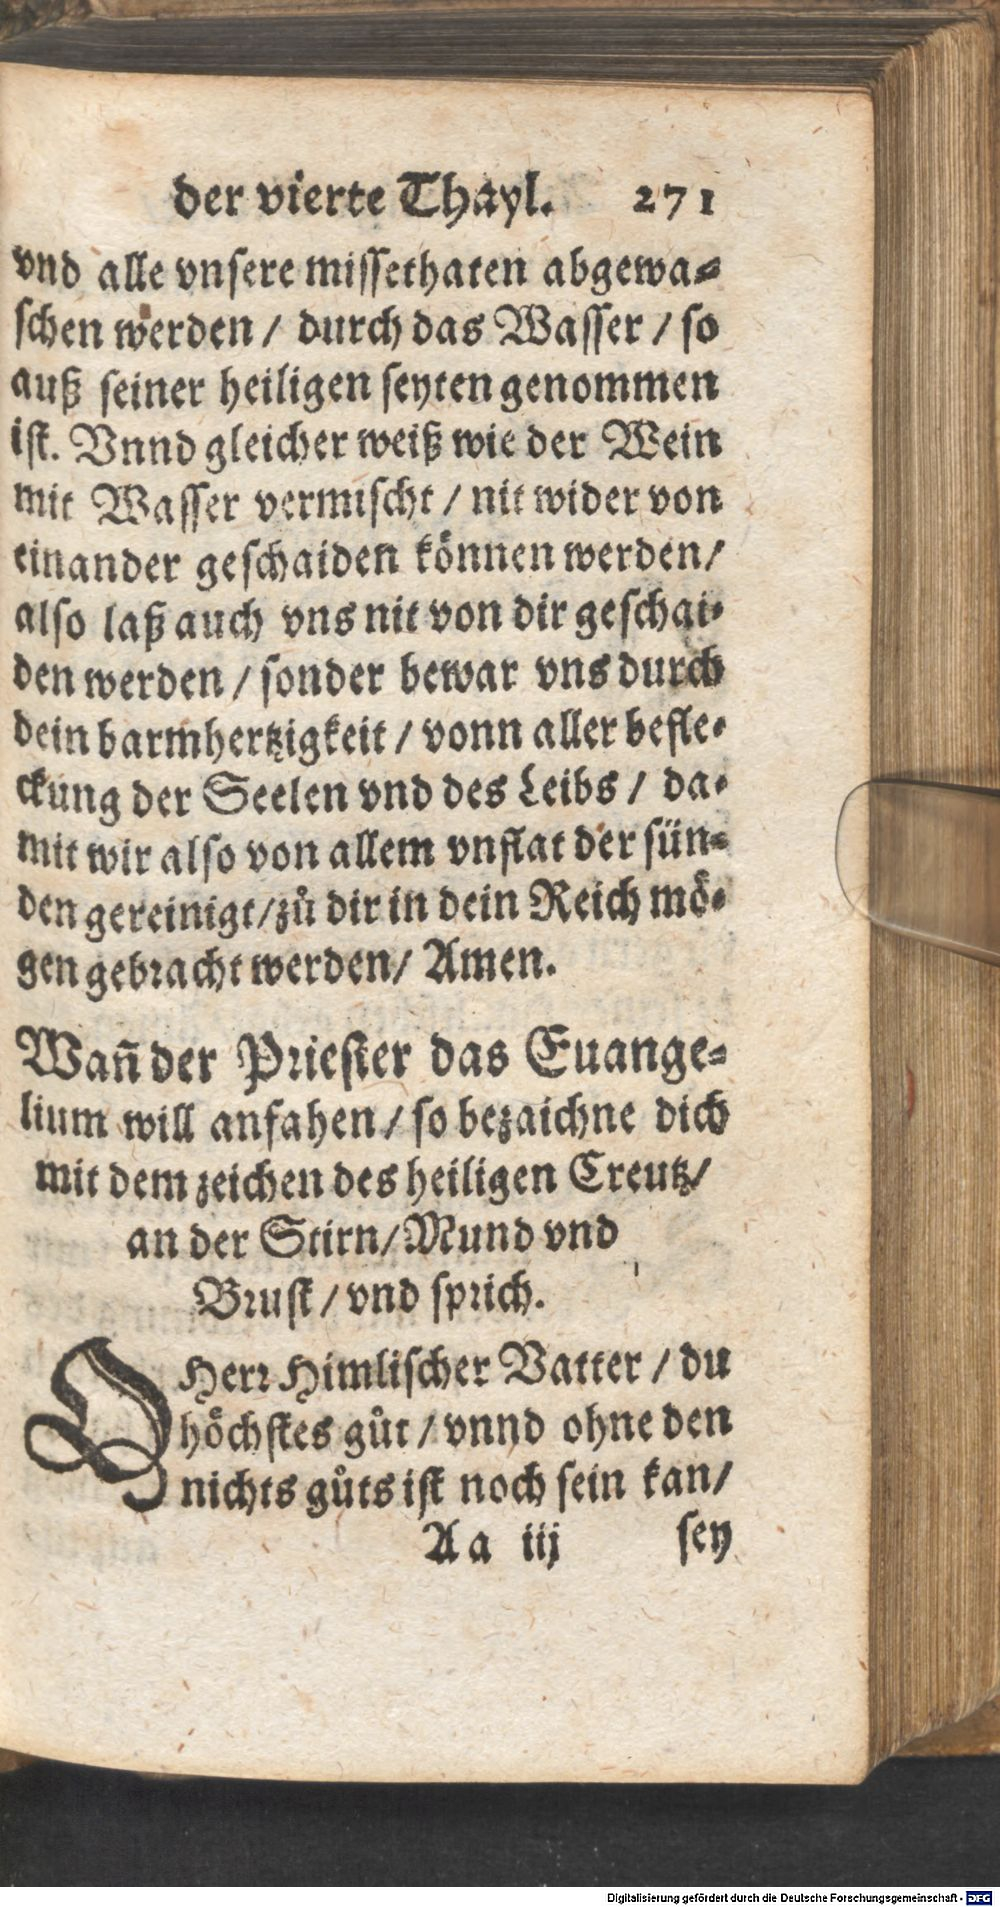 der vierte Thayl. 271
vnd alle vnsere missethaten abgewa-
schen werden / durch das Wasser / so
auß seiner heiligen seyten genommen
ist. Vnnd gleicher weiß wie der Wein
mit Wasser vermischt / nit wider von
einander geschaiden können werden /
also laß auch vns nit von dir geschai-
den werden / sonder bewar vns durch
dein barmhertzigkeit / vonn aller befle-
ckung der Seelen vnd des Leibs / da-
mit wir also von allem vnflat der sün-
den gereinigt / zů dir in dein Reich mö-
gen gebracht werden / Amen.
Wañ der Priester das Euange-
lium will anfahen / so bezaichne dich
mit dem zeichen des heiligen Creutz /
an der Stirn / Mund vnd
Brust / vnd sprich.
O Herr Himlischer Vatter / du
höchstes gůt / vnnd ohne den
nichts gůts ist noch sein kan /
Aa iij sey
Digitalisierung gefördert durch die Deutsche Forschungsgemeinschaft - DFG